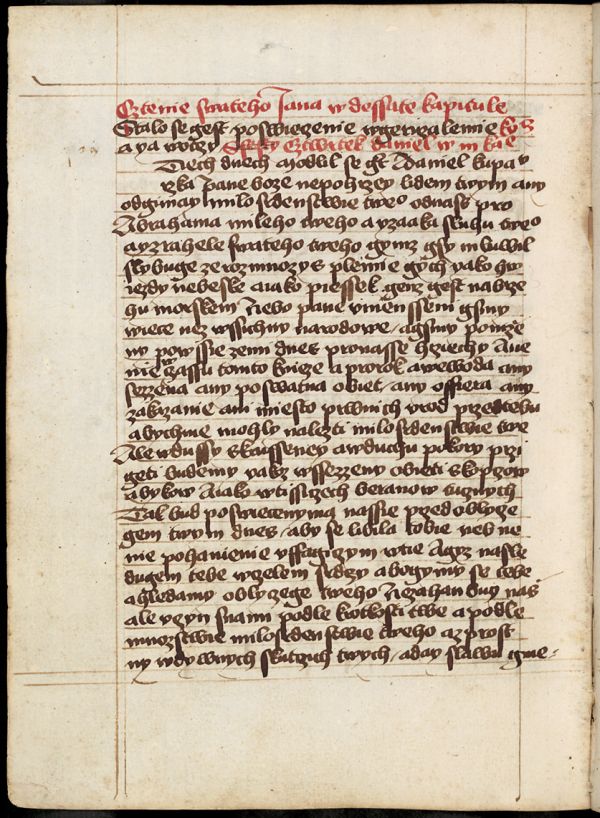 Cztenie swateho Jana w dessate kapitule
Stalo se gest poswieczenie wgeruzalemie
a ya wotczy Ssesty cztwrtek daniel w
Tiech dnech modlil se gt Daniel
rzka pane boze nepohrzey lidem twym any
odgimay milosrdenstwie tweo odnass pro
Abrahama mileho tweho a yzaaka sluhu tweo
a yzrahele swateho tweho gymz gsy mluwil
slybuge ze rozmnozys plemie gich yako hw
iezdy nebeske a iako piessek genz gest nabrze
hu morskem Nebo pane vmensseni gsmy
wiece nez wssichny narodowe a gsmy ponize
ny powssie zemi dnes pronasse hrziechy A ne
nie wczassu tomto knieze a prorok a wewoda any
zezzena any poswatna obiet any offiera any
zakazanie ani miesto prwnich vrod przedtebu
abychme mohly nalezti milosrdenstwie twe
Ale wdussy skrusseney a wduchu pokory przi
geti budemy yakz wssezzeny obieti skopczow
a bykow A iako wtissiczech beranow tucznych
Tak bud poswieceny ma nassie przed oblycze
gem twym dnes aby se libila tobie neb ne
nie pohanienie vffagiczym wtie A gyz nasle
dugem tebe wssem srdczy a bogymy se tebe
a hledamy oblyczege tweho Nezahanbuy nas
ale vczyn snami podle krotkosti twe a podle
mnozstwie milosrdenstwie tweho a zprost
ny wdywnych skutczich twych a day slawu gme=